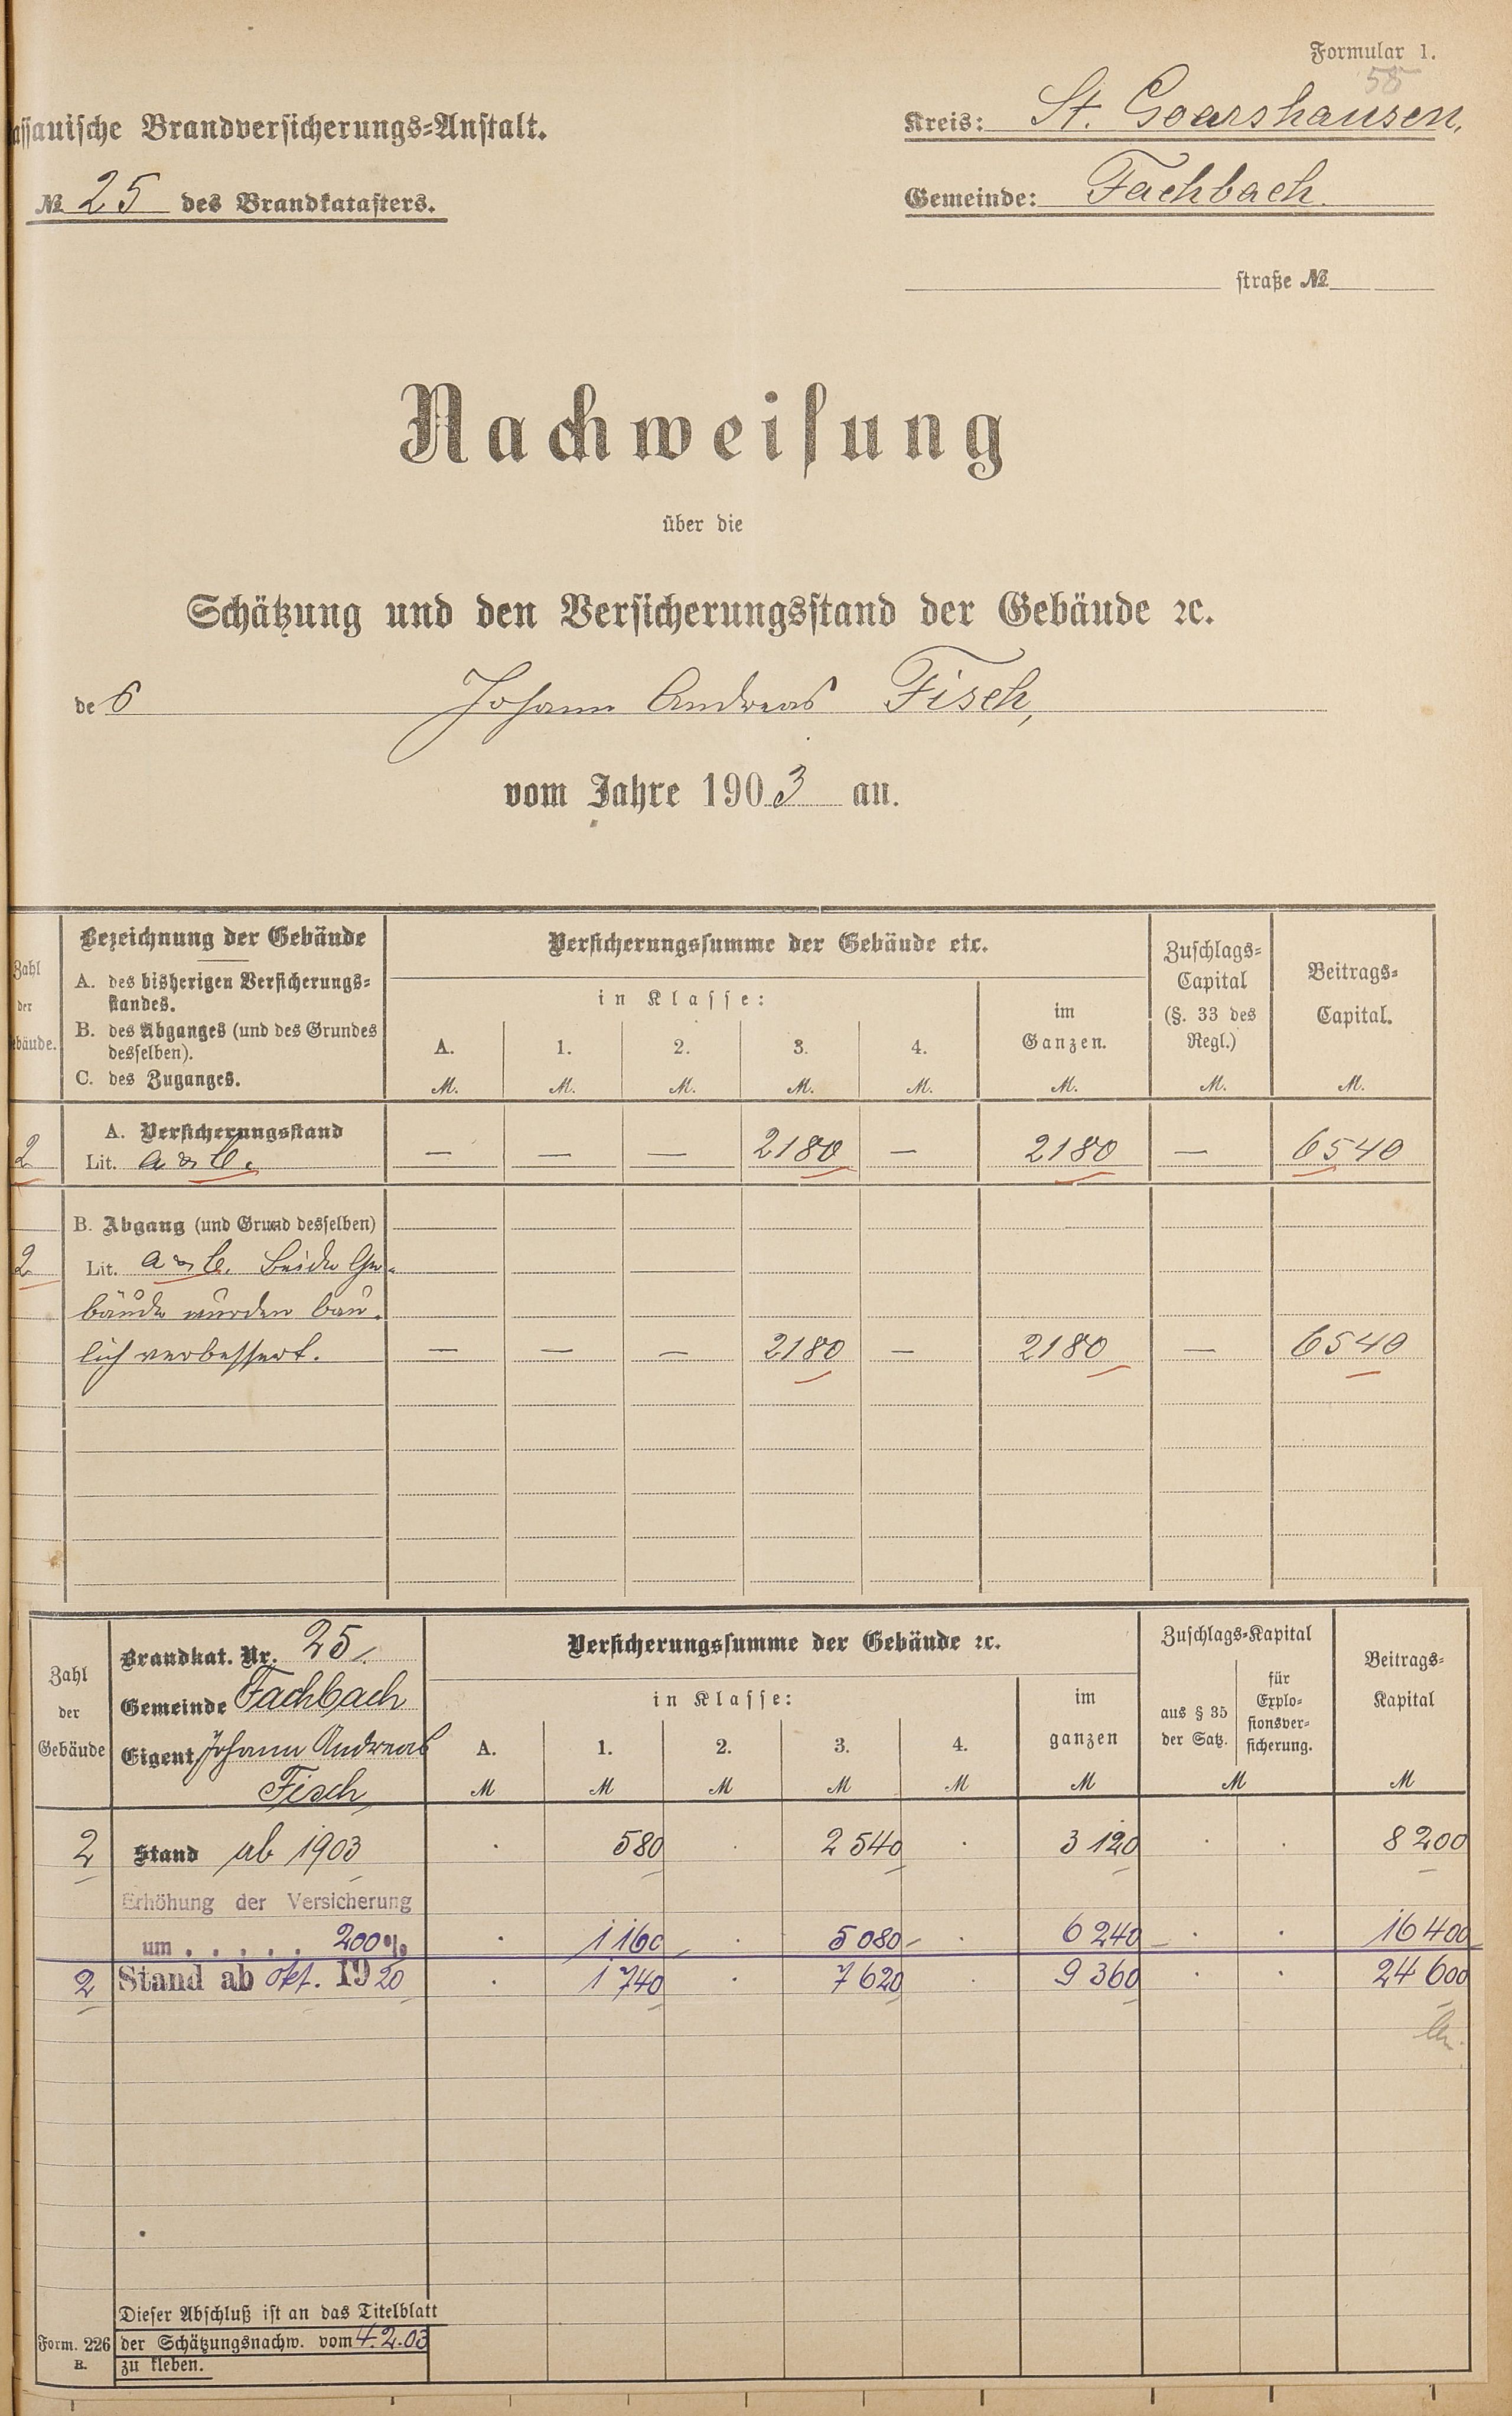 Formular 1.
58
assauische Brandversicherungs=Anstalt.
Kreis: St. Goarshausen,
№ 25 des Brandkatasters.
Gemeinde: Fachbach.
straße №
Nachweisung
über die
Schätzung und den Versicherungsstand der Gebäude ꝛc.
des Johann Andreas Fisch,
vom Jahre 1903 an.
Zahl der ebäude.
Bezeichnung der Gebäude
A. des bisherigen Versicherungs=
standes.
B. des Abganges (und des Grundes
desselben).
C. des Zuganges.
Versicherungssumme der Gebäude etc.
in Klasse:
A. 1. 2. 3. 4.
im
Ganzen.
Zuschlags=
Capital
(§. 33 des
Regl.)
Beitrags=
Capital.
M. M. M. M. M. M. M. M.
A. Versicherungsstand
2 Lit. a & b. — — — 2180 — 2180 — 6540
B. Abgang (und Grund desselben)
2 Lit. a & b. Beide Ge=
bäude wurden bau=
lich verbessert. — — — 2180 — 2180 — 6540
Zahl
der
Gebäude
Brandkat. Nr. 25.
Gemeinde Fachbach
Eigent. Johann Andreas
Fisch
Versicherungssumme der Gebäude ꝛc.
in Klasse:
A. 1. 2. 3. 4.
im
ganzen
Zuschlags=Kapital
aus § 35
der Satz.
für
Explo=
sionsver=
sicherung.
Beitrags=
Kapital
M M M M M M M M
2 Stand ab 1903 . 580 . 2 540 . 3 120 . . 8 200
Erhöhung der Versicherung
um . . . . . 200 % . 1 160 . 5 080 . 6 240 . . 16 400
2 Stand ab Okt. 1920 . 1 740 . 7 620 . 9 360 . . 24 600
Form. 226
B.
Dieser Abschluß ist an das Titelblatt
der Schätzungsnachw. vom 4.2.03
zu kleben.